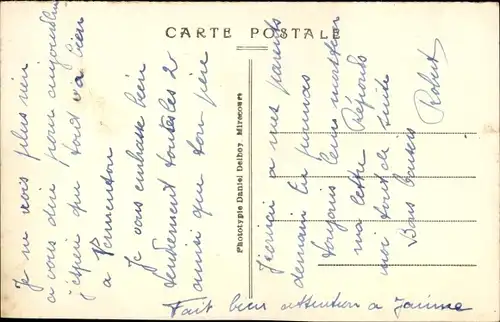 CARTE POSTALE
Je ne vois plus rien
a vous dire pour aujourd'hui
j'espère que tout va bien
a
Je vous embrasse bien
tendrement toutes les 2
ainsi que ton père
Phototypie Daniel Delboy Mirecourt
J'écrirai a mes parents
demain
toujours leurs
Réponds
ma lettre
moi tout de suite
Bons baisers
Robert
Fait bien attention a